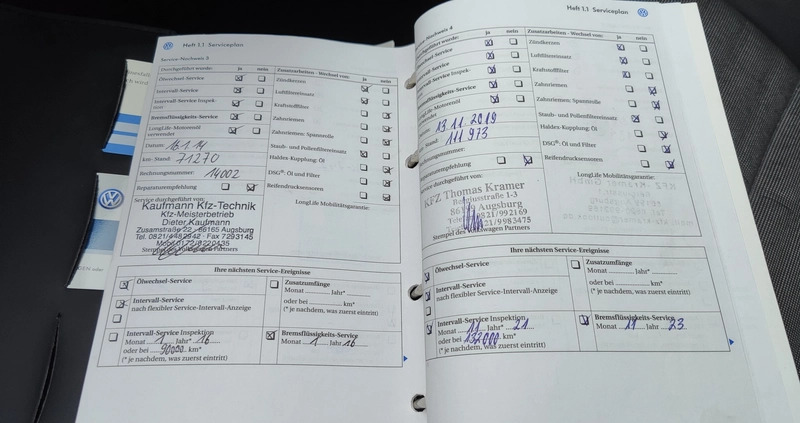 Heft 1.1 Serviceplan
Service-Nachweis 3
Durchgeführt wurde: ja nein
Ölwechsel-Service
Intervall-Service
Intervall-Service Inspektion
Bremsflüssigkeits-Service
LongLife-Motorenöl verwendet
Datum: 16.1.14
km-Stand: 71270
Rechnungsnummer: 14002
Reparaturempfehlung
Service durchgeführt von:
Kaufmann Kfz-Technik
Kfz-Meisterbetrieb
Dieter Kaufmann
Zusamstraße 22, 86165 Augsburg
Tel. 0821/4482942 · Fax 7293145
Mobil 0172/8220435
Stempel des Volkswagen Partners
Zusatzarbeiten - Wechsel von: ja nein
Zündkerzen
Luftfiltereinsatz
Kraftstofffilter
Zahnriemen
Zahnriemen: Spannrolle
Staub- und Pollenfiltereinsatz
Haldex-Kupplung: Öl
DSG®: Öl und Filter
Reifendrucksensoren
LongLife Mobilitätsgarantie:
Ihre nächsten Service-Ereignisse
Ölwechsel-Service
Intervall-Service
nach flexibler Service-Intervall-Anzeige
Zusatzumfänge
Monat Jahr*
oder bei km*
(* je nachdem, was zuerst eintritt)
Intervall-Service Inspektion
Monat 1 Jahr 16
oder bei 90000 km*
(* je nachdem, was zuerst eintritt)
Bremsflüssigkeits-Service
Monat 1 Jahr 16
Heft 1.1 Serviceplan
Service-Nachweis 4
wurde: ja nein
Service
Service
Service Inspek-
Bremsflüssigkeits-Service
Motorenöl
13.11.2019
Stand: 111 973
Rechnungsnummer:
Reparaturempfehlung
Service durchgeführt von:
KFZ Thomas Kramer
1-3
Augsburg
0821/992169
0821/9983475
Stempel des Volkswagen Partners
Zusatzarbeiten - Wechsel von: ja nein
Zündkerzen
Luftfiltereinsatz
Kraftstofffilter
Zahnriemen
Zahnriemen: Spannrolle
Staub- und Pollenfiltereinsatz
Haldex-Kupplung: Öl
DSG®: Öl und Filter
Reifendrucksensoren
LongLife Mobilitätsgarantie:
Ihre nächsten Service-Ereignisse
Ölwechsel-Service
Intervall-Service
nach flexibler Service-Intervall-Anzeige
Zusatzumfänge
Monat Jahr*
oder bei km*
(* je nachdem, was zuerst eintritt)
Intervall-Service Inspektion
Monat 11 Jahr 21
oder bei 132000 km*
(* je nachdem, was zuerst eintritt)
Bremsflüssigkeits-Service
Monat 11 Jahr 23